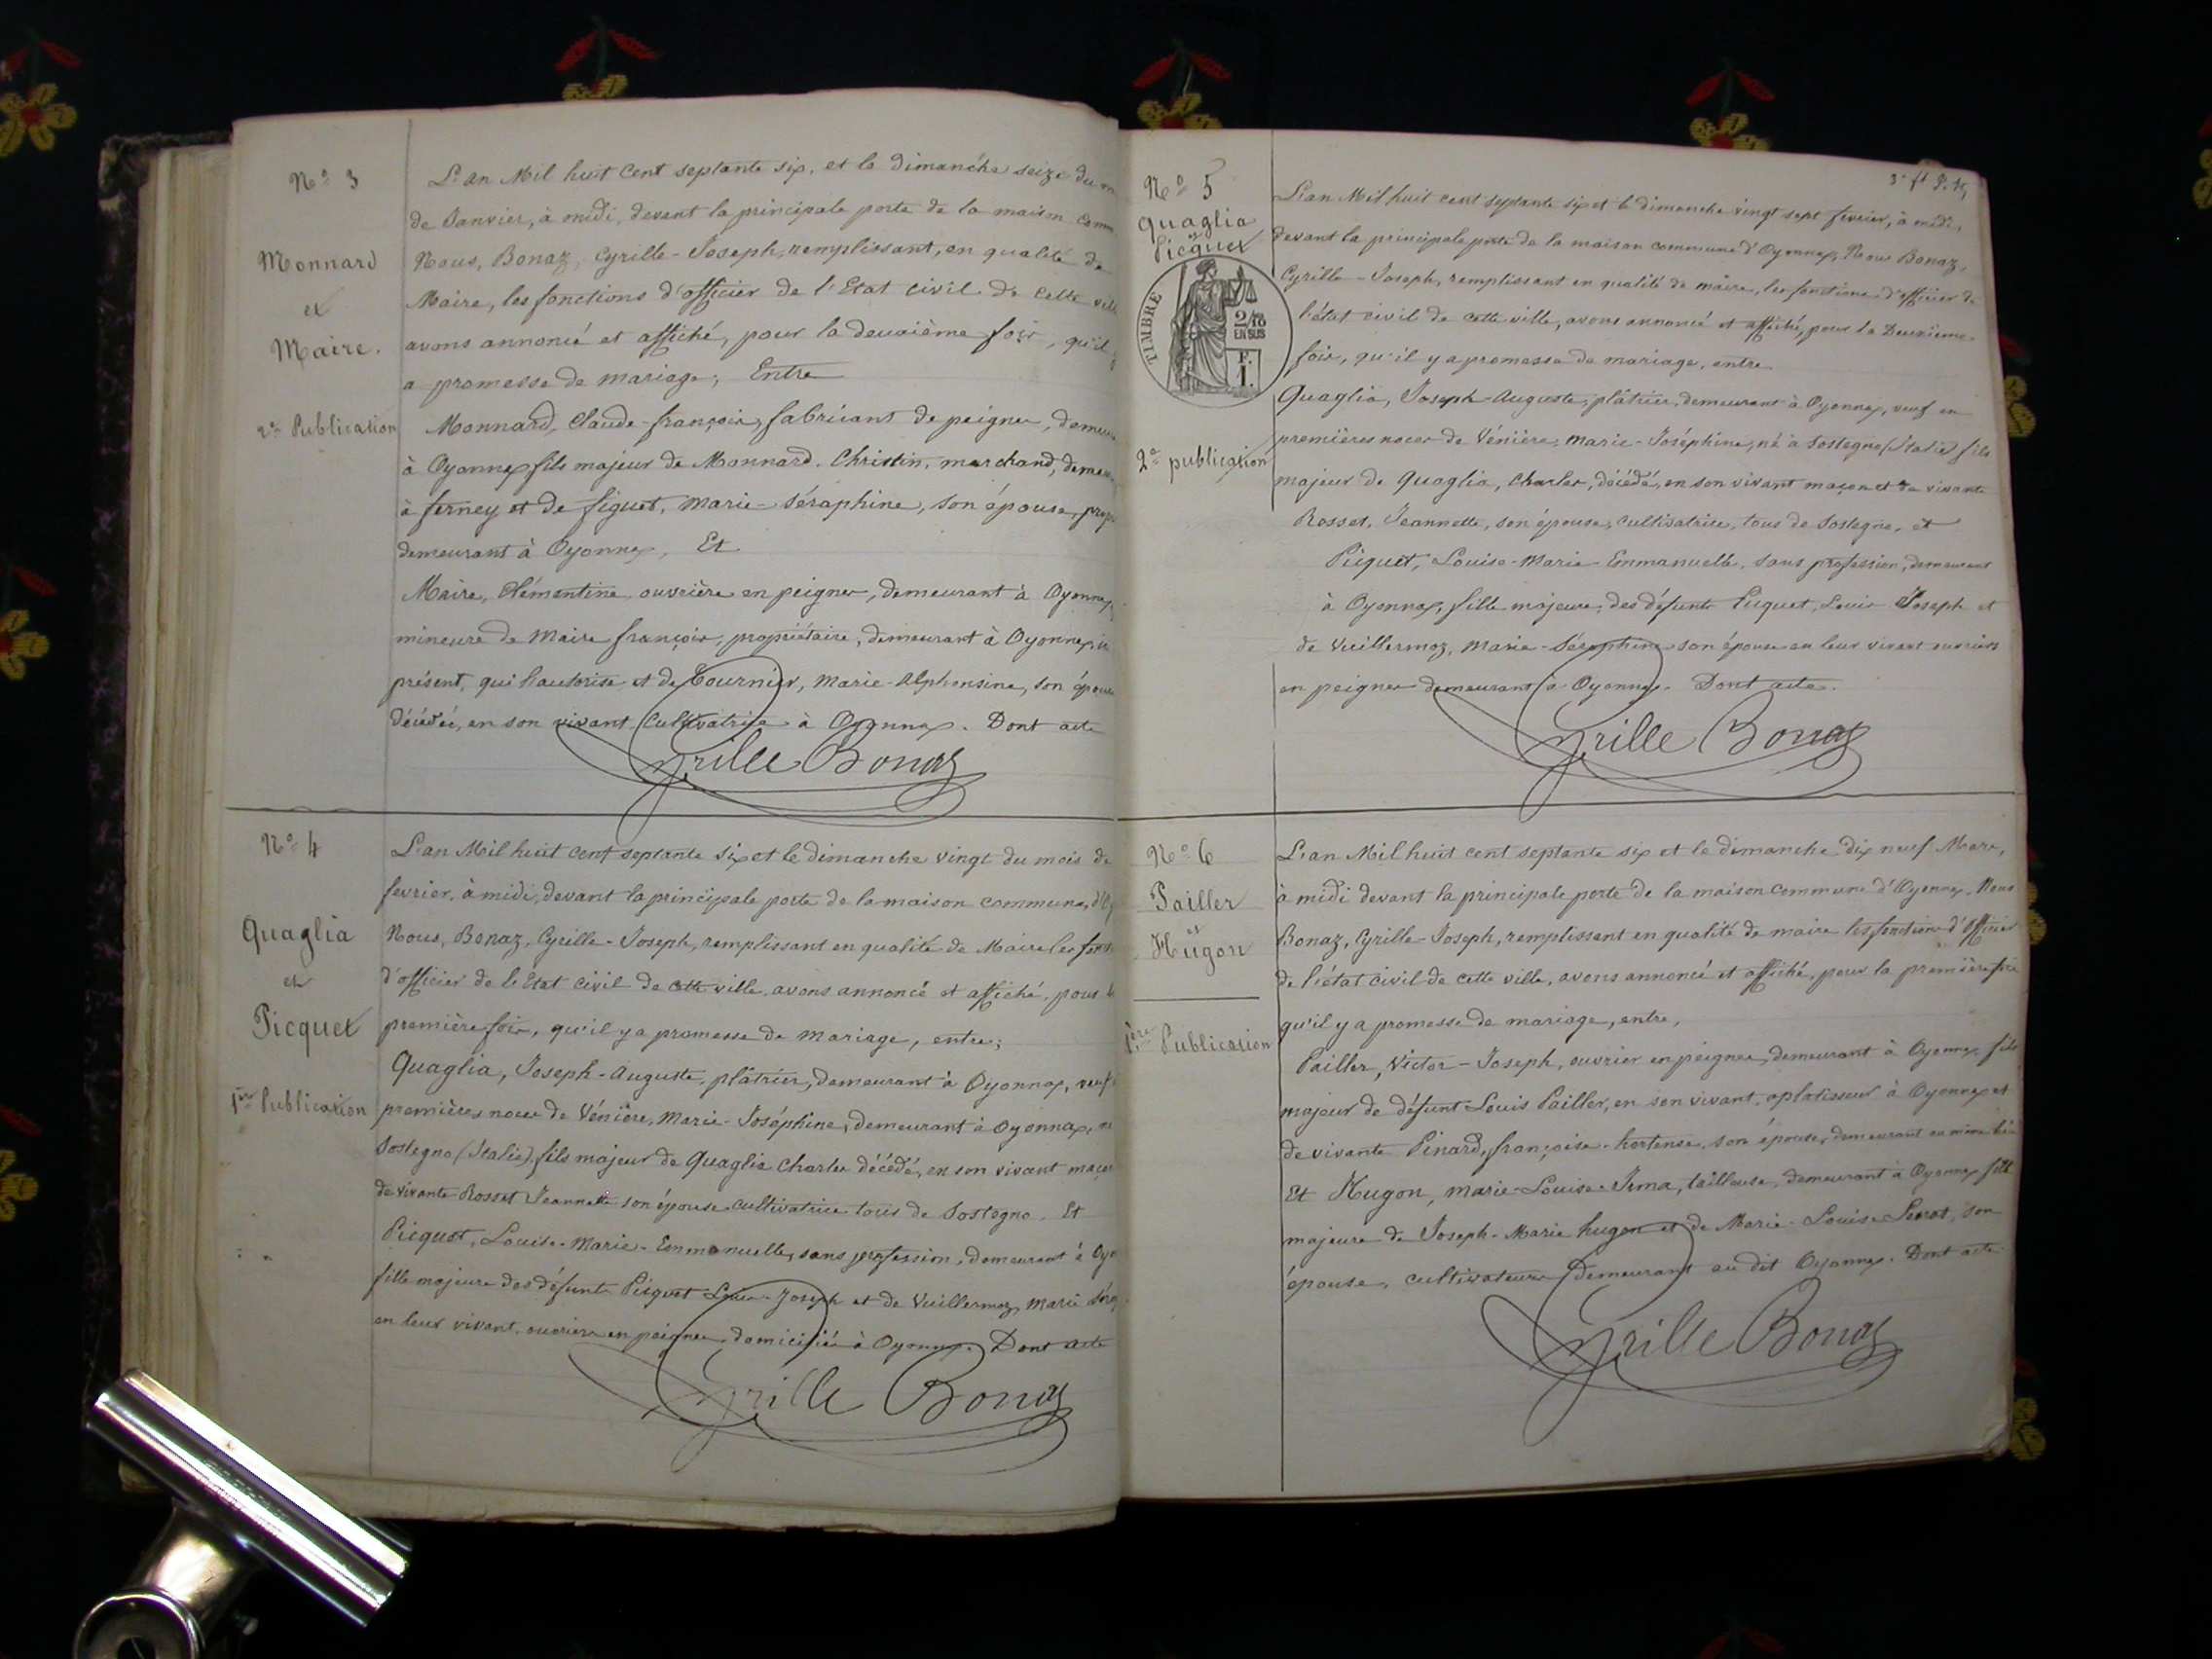 Nº 3
Monnard
et
Maire.
2e Publication
L'an Mil huit Cent septante six, et le dimanche seize du m
de Janvier, à midi, devant la principale porte de la maison comm
Nous, Bonaz, Cyrille-Joseph, remplissant, en qualité de
Maire, les fonctions d'officier de l'Etat civil de cette ville
avons annoncé et affiché, pour la deuxième fois, qu'il y
a promesse de mariage; Entre
Monnard, Claude-françois, fabricant de peignes, demeu
à Oyonnax fils majeur de Monnard, Christin, marchand, demeu
à ferney et de figuet, marie-séraphine, son épouse, prop
demeurant à Oyonnax, Et
Maire, Clémentine, ouvrière en peignes, demeurant à Oyonnax,
mineure de Maire françois, propriétaire, demeurant à Oyonnax, ici
présent, qui l'autorise et de Tournier, Marie-Alphonsine, son épouse
décédée, en son vivant cultivatrice à Oyonnax. Dont acte
Cyrille Bonaz
Nº 4
Quaglia
et
Picquet
1ère Publication
L'an Mil huit cent septante six et le dimanche vingt du mois de
fevrier, à midi, devant la principale porte de la maison commune, d'Oy
Nous, Bonaz, Cyrille-Joseph, remplissant en qualité de Maire les fonct
d'officier de l'Etat civil de cette ville, avons annoncé et affiché, pour la
première fois, qu'il y a promesse de mariage, entre;
Quaglia, Joseph-Auguste, plâtrier, demeurant à Oyonnax, veuf
premières noces de Vénière, Marie-Joséphine, demeurant à Oyonnax, né
Sostegno (Italie), fils majeur de Quaglia Charles décédé, en son vivant maçon
de vivante Rosset Jeannette son épouse cultivatrice tous de Sostegno. Et
Picquet, Louise-Marie-Emmanuelle, sans profession, demeurant à Oyo
fille majeure des défunts Picquet Louis-Joseph et de Vuillermoz, Marie Sérap
en leur vivant, ouvriers en peignes, domiciliés à Oyonnax. Dont acte
Cyrille Bonaz
3e ft
Nº 5
Quaglia
et
Picquet
TIMBRE
2/10
EN SUS
F.
1.
2e publication
L'an Mil huit cent septante six et le dimanche vingt sept fevrier, à midi,
devant la principale porte de la maison commune d'Oyonnax, Nous Bonaz,
Cyrille-Joseph, remplissant en qualité de maire, les fonctions d'officier de
l'état civil de cette ville, avons annoncé et affiché, pour la Deuxième
fois, qu'il y a promesse de mariage, entre
Quaglia, Joseph-Auguste, plâtrier, demeurant à Oyonnax, veuf en
premières noces de Vénière, marie-Joséphine, né à Sostegno (Italie) fils
majeur de Quaglia, Charles, décédé, en son vivant maçon et de vivante
Rosset, Jeannette, son épouse, cultivatrice, tous de Sostegno, et
Picquet, Louise-Marie-Emmanuelle, sans profession, demeurant
à Oyonnax, fille majeure, des défunts Picquet, Louis Joseph et
de Vuillermoz, Marie-Séraphine son épouse en leur vivant ouvriers
en peignes demeurant à Oyonnax. Dont acte.
Cyrille Bonaz
Nº 6
Pailler
et
Hugon
1ère Publication
L'an Mil huit cent septante six et le dimanche dix neuf Mars,
à midi devant la principale porte de la maison commune d'Oyonnax, Nous
Bonaz, Cyrille-Joseph, remplissant en qualité de maire les fonctions d'officier
de l'état civil de cette ville, avons annoncé et affiché, pour la première fois
qu'il y a promesse de mariage, entre,
Pailler, Victor-Joseph, ouvrier en peignes, demeurant à Oyonnax fils
majeur de défunt Louis Pailler, en son vivant, aplatisseur à Oyonnax et
de vivante Pinard, françoise-hortense, son épouse, demeurant au même lieu
Et Hugon, Marie-Louise-Irma, tailleuse, demeurant à Oyonnax fille
majeure de Joseph-Marie hugon et de Marie-Louise son
épouse, cultivateurs demeurant au dit Oyonnax. Dont acte
Cyrille Bonaz